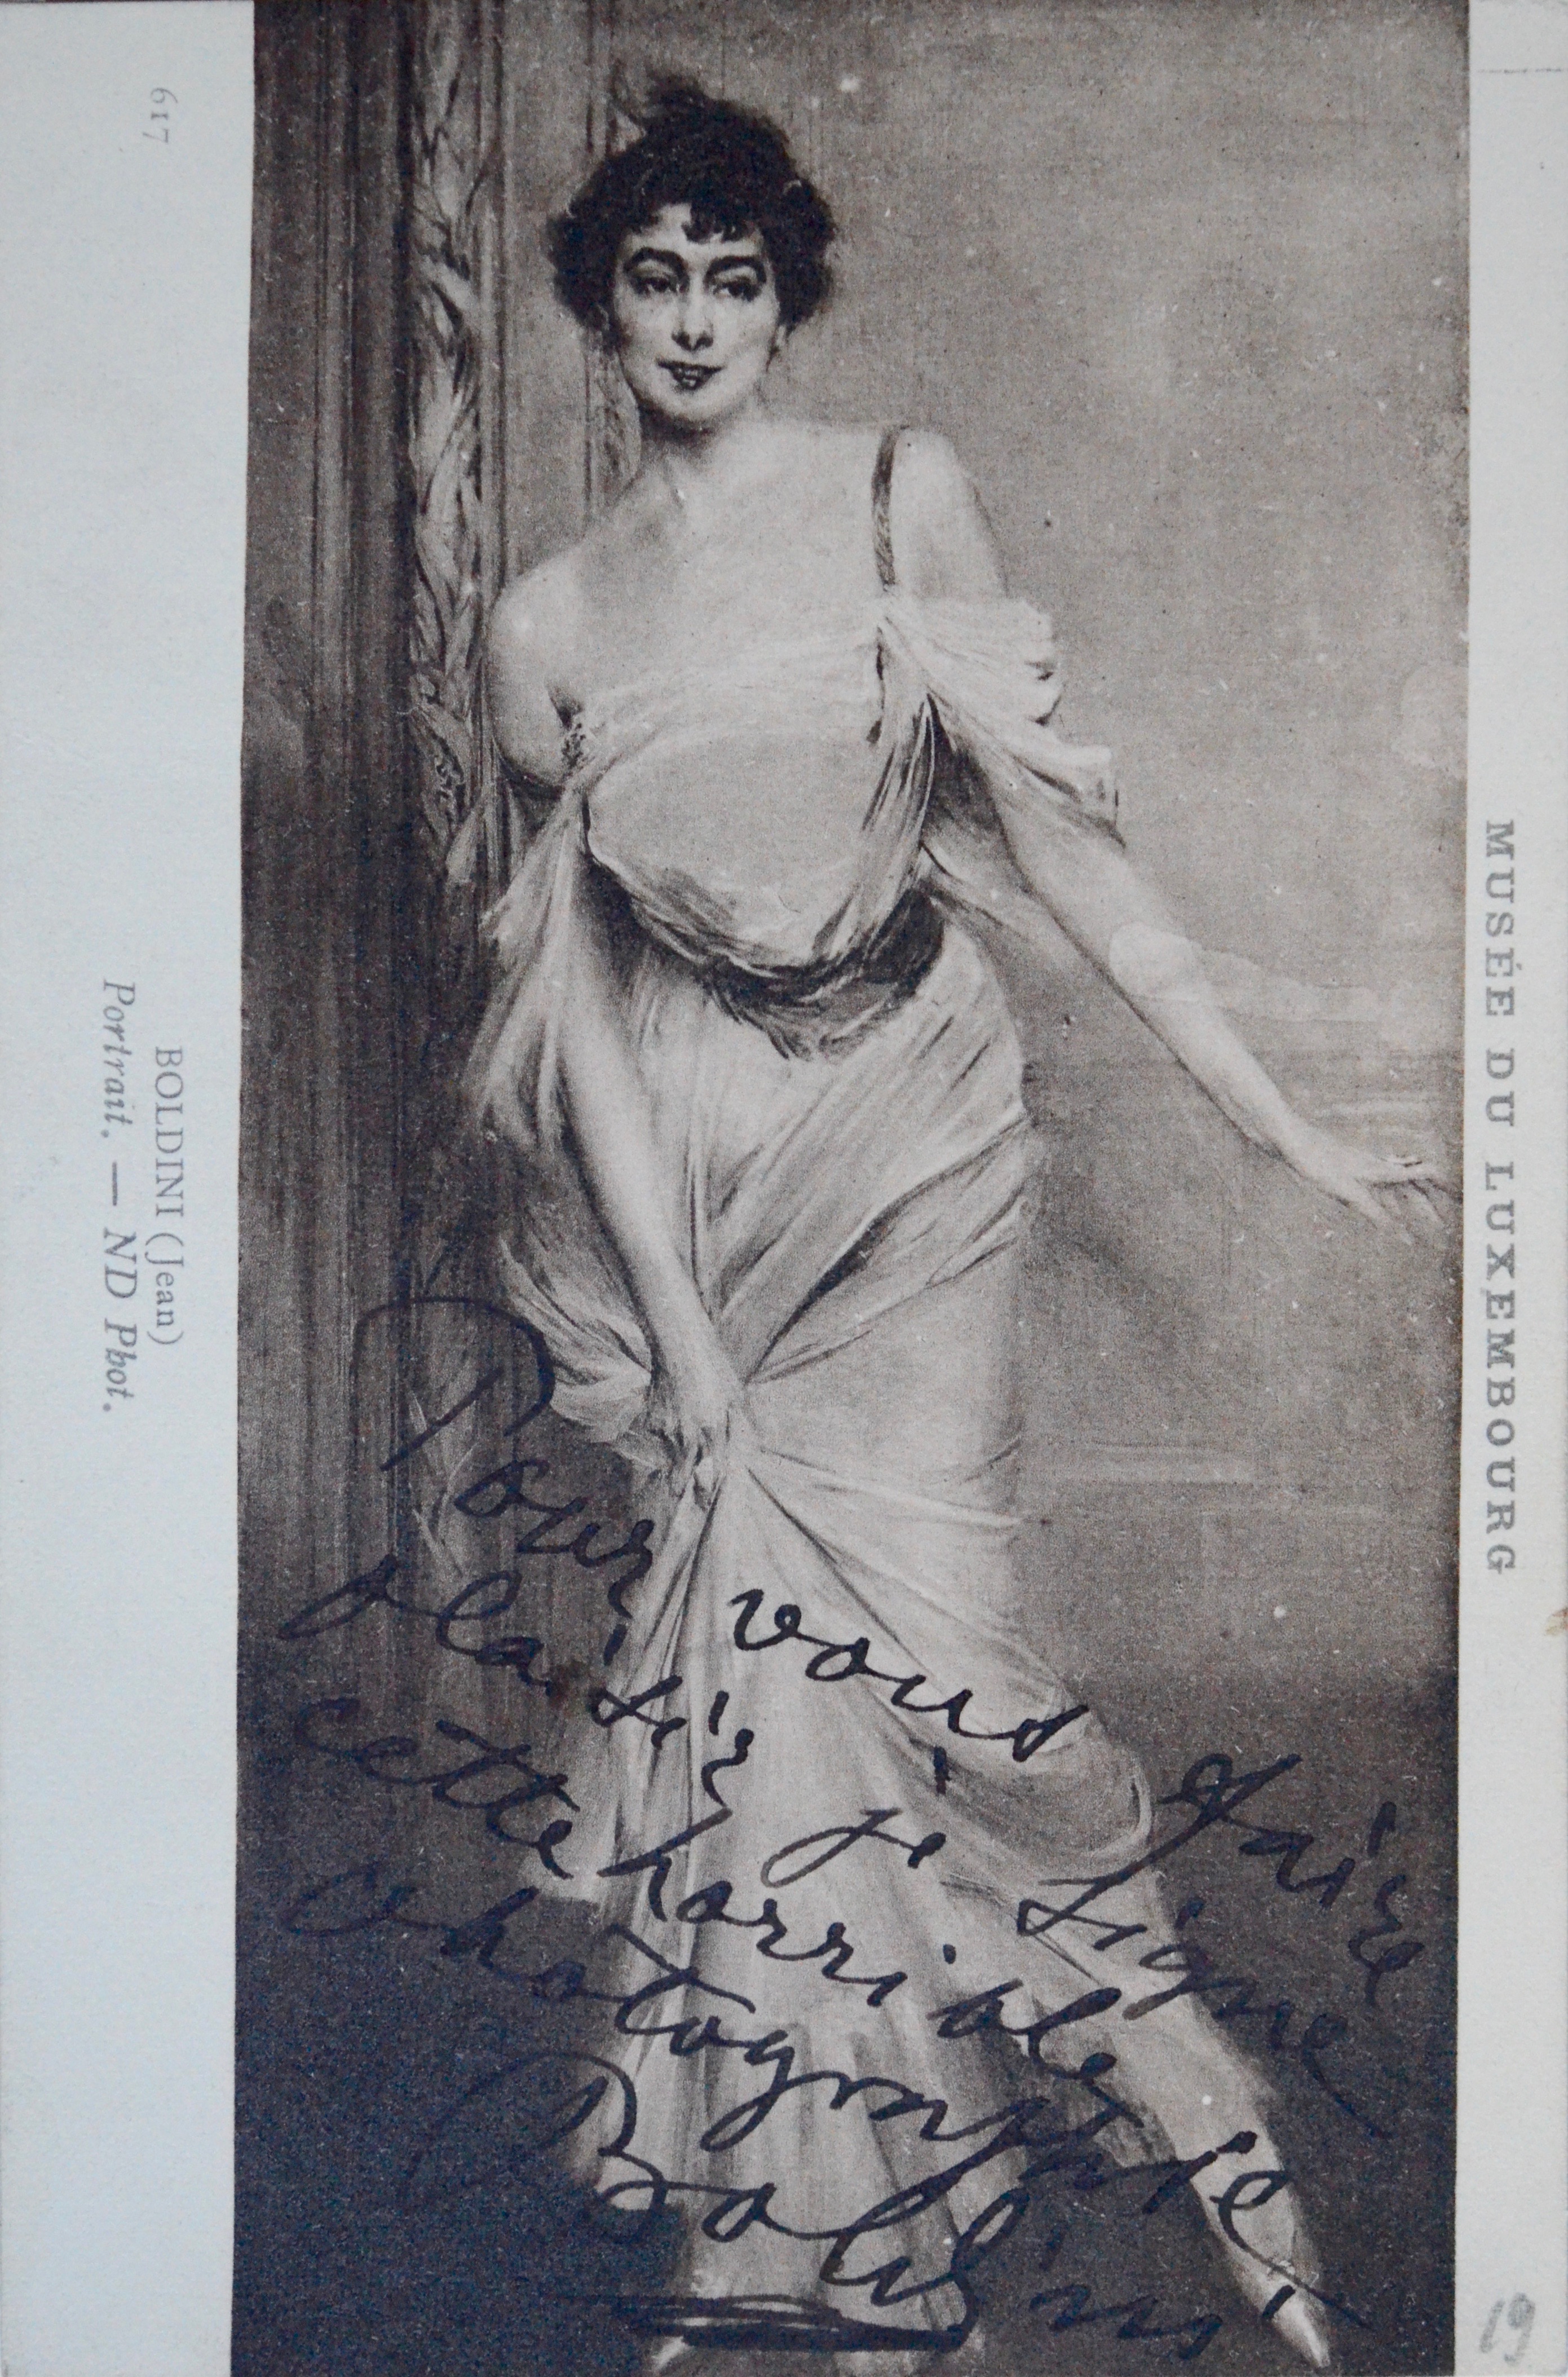 MUSÉE DU LUXEMBOURG
617
BOLDINI (Jean)
Portrait. — ND Phot.
Pour vous faire
plaisir je signe
cette horrible
photographie
Boldini
19